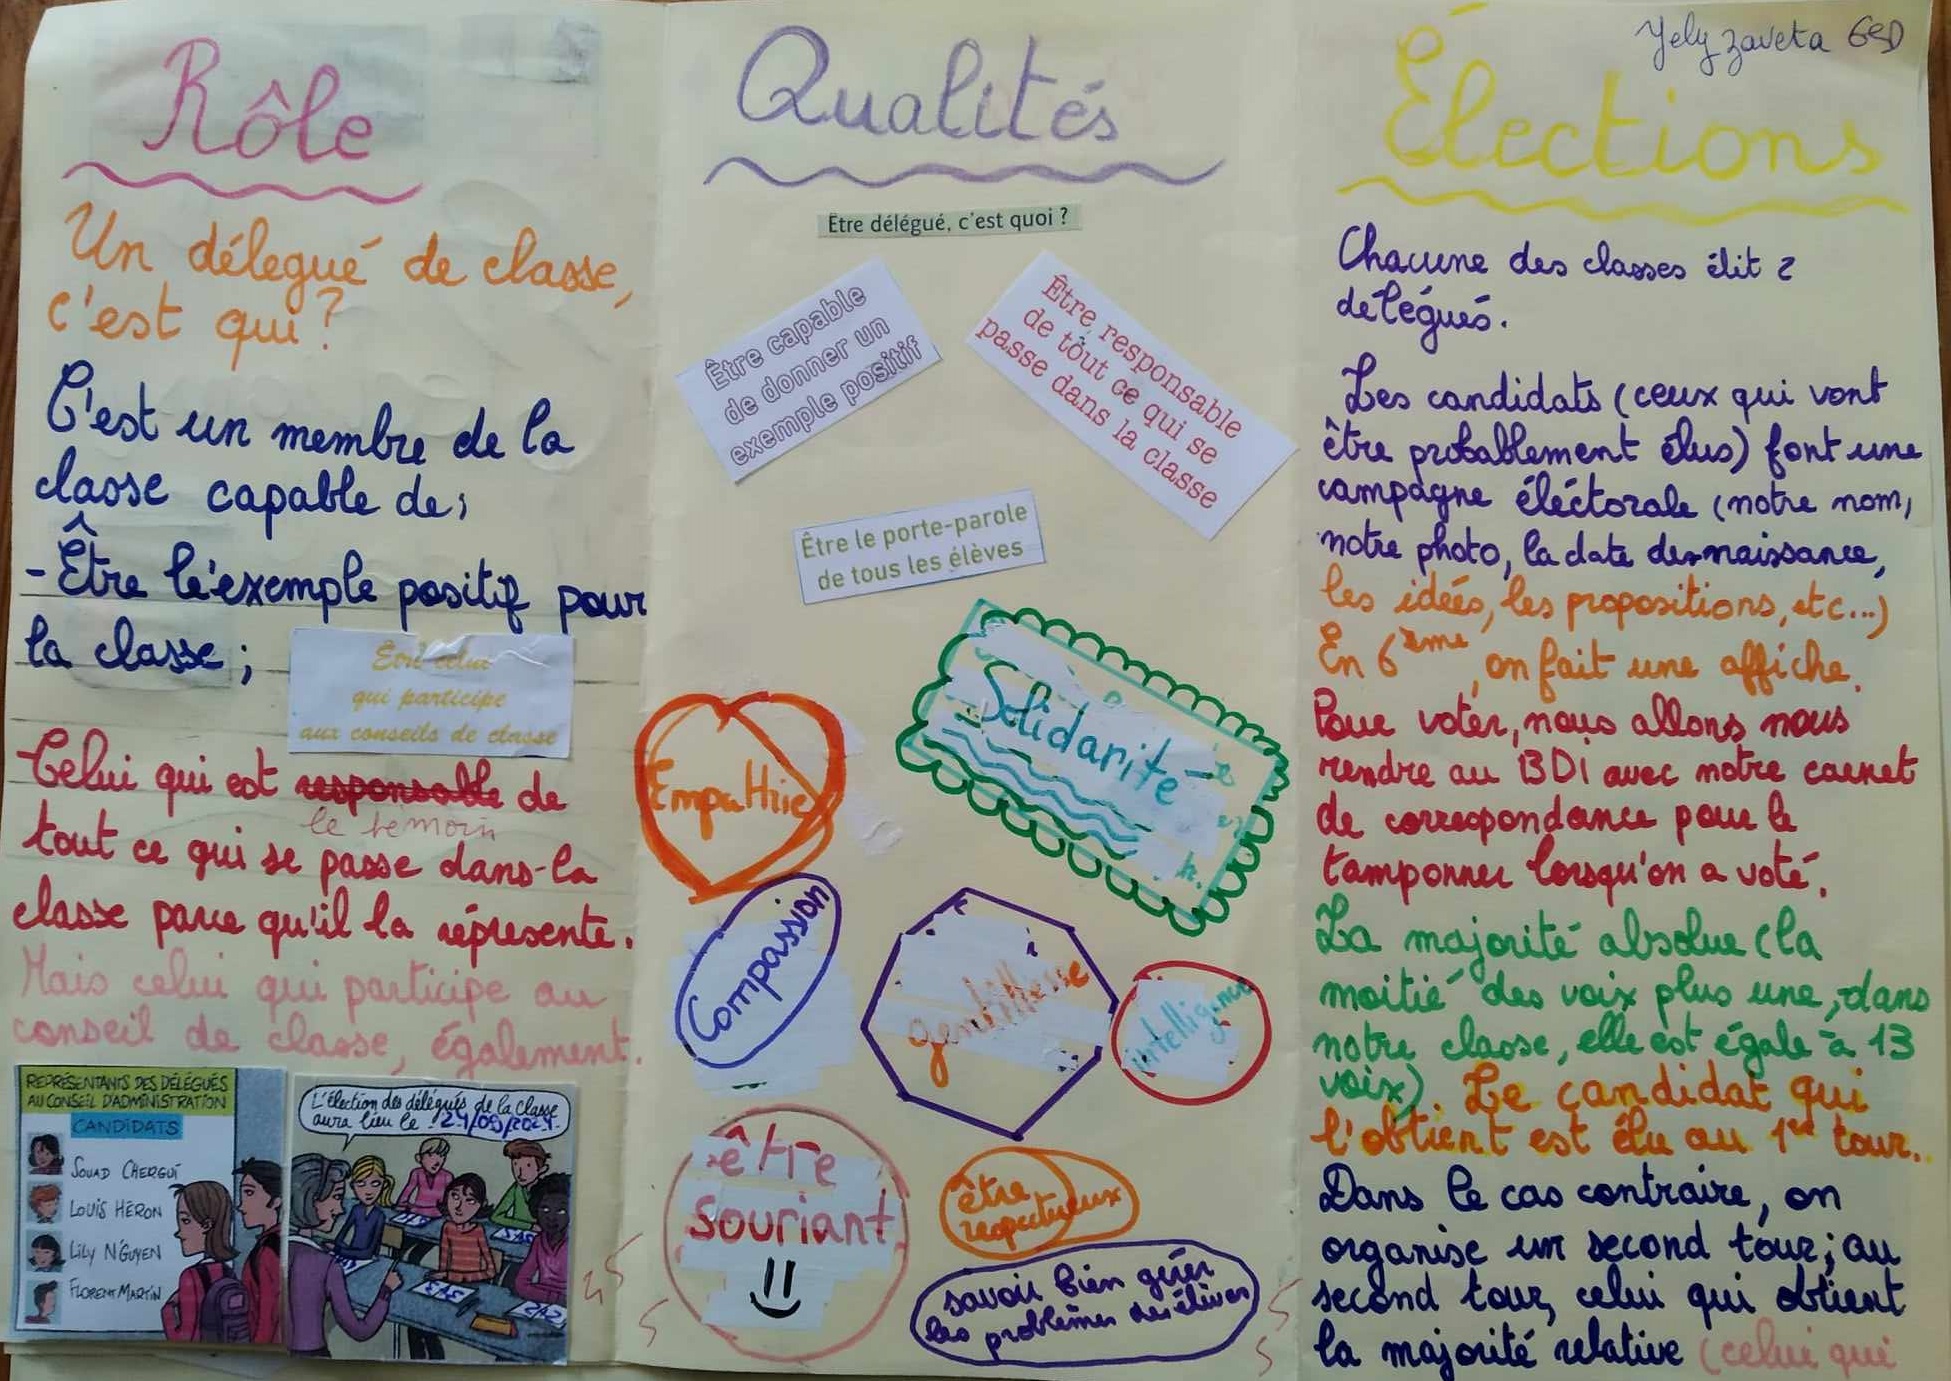 Rôle
Un délegué de classe,
c'est qui?
C'est un membre de la
classe capable de;
- Être le'exemple positif pour
la classe;
Être celui
qui participe
aux conseils de classe
-Celui qui est responsable de
le temoin
tout ce qui se passe dans-la
classe parce qu'il la réprésente.
Mais celui qui participe au
conseil de classe, également.
REPRÉSENTANTS DES DÉLÉGUÉS
AU CONSEIL D'ADMINISTRATION
CANDIDATS
SOUAD CHERGUI
LOUIS HÉRON
LILY N'GUYEN
FLORENT MARTIN
L'élection des délégués de la classe
aura lieu le :
Qualités
Être délégué, c'est quoi ?
Être capable
de donner un
exemple positif
Être responsable
de tout ce qui se
passe dans la classe
Être le porte-parole
de tous les élèves
Solidarité
Empathie
Compassion
gentillesse
intelligence
être
souriant
être
respectueux
savoir bien gérer
les problèmes des élèves
Yelyzaveta 6eD
Élections
Chacune des classes élit 2
délégués.
Les candidats (ceux qui vont
être probablement élus) font une
campagne éléctorale (notre nom,
notre photo, la date de naissance,
les idéés, les propositions, etc...)
En 6ème, on fait une affiche.
Pour voter, nous allons nous
rendre au BDi avec notre carnet
de correspondance pour le
tamponner lorsqu'on a voté.
La majorité absolue (la
moitié des voix plus une, dans
notre classe, elle est égale à 13
voix). Le candidat qui
l'obtient est élu au 1er tour.
Dans le cas contraire, on
organise un second tour; au
second tour, celui qui obtient
la majorité relative (celui qui